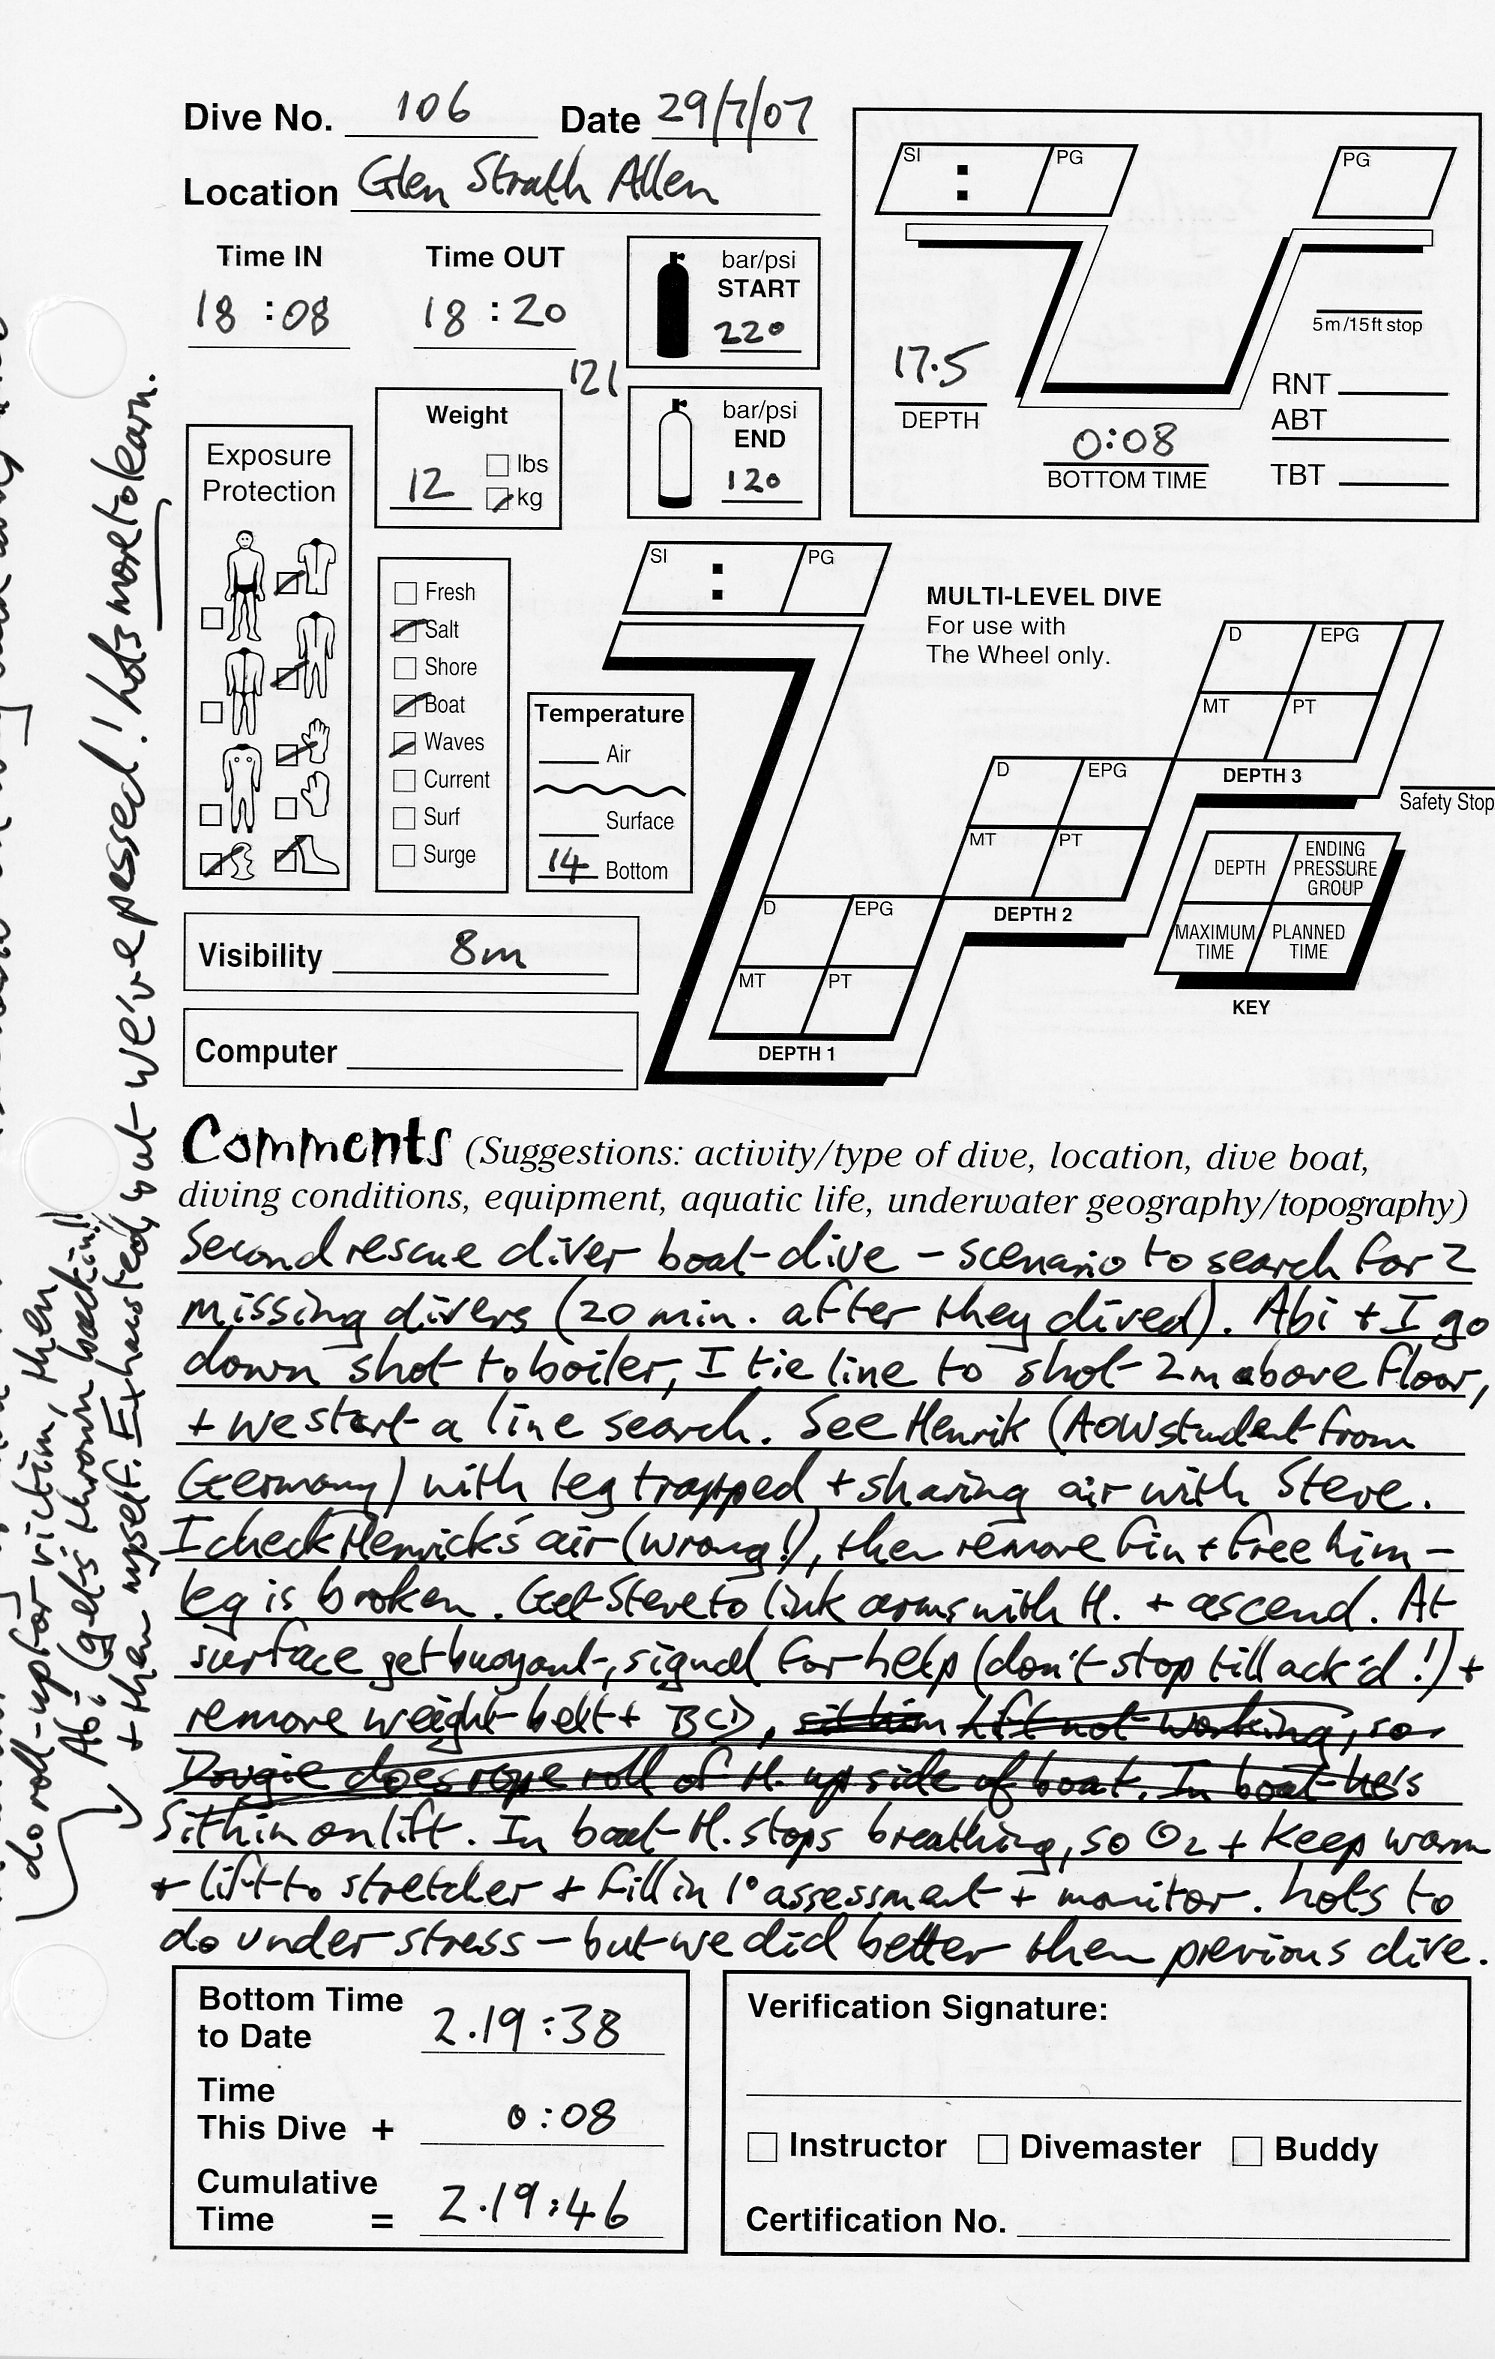 Dive No. 106 Date 29/7/07
Location Glen Strath Allen
Time IN Time OUT
18:08 18:20
bar/psi
START
220
12l
bar/psi
END
120
Weight
12 lbs
kg
Exposure
Protection
Fresh
Salt
Shore
Boat
Waves
Current
Surf
Surge
Temperature
Air
Surface
14 Bottom
Visibility 8m
Computer
SI : PG
PG
5m/15ft stop
17.5
DEPTH
0:08
BOTTOM TIME
RNT
ABT
TBT
SI : PG
MULTI-LEVEL DIVE
For use with
The Wheel only.
D EPG
MT PT
DEPTH 3
Safety Stop
D EPG
MT PT
DEPTH 2
D EPG
MT PT
DEPTH 1
DEPTH ENDING PRESSURE GROUP
MAXIMUM TIME PLANNED TIME
KEY
Comments (Suggestions: activity/type of dive, location, dive boat,
diving conditions, equipment, aquatic life, underwater geography/topography)
Second rescue diver boat-dive - scenario to search for 2
missing divers (20 min. after they dived). Abi + I go
down shot to boiler, I tie line to shot 2m above floor,
+ we start a line search. See Henrik (AOW student from
Germany) with leg trapped + sharing air with Steve.
I check Henrick's air (wrong!), then remove fin + free him -
leg is broken. Get Steve to link arms with H. + ascend. At
surface get buoyant, signal for help (don't stop till ack'd!) +
remove weight-belt + BCD, sit him lift not working, so
Dougie does rope roll of H. up side of boat. In boat he's
Sit him on lift. In boat H. stops breathing, so O2 + keep warm
+ lift to stretcher + fill in 1° assessment + monitor. Lots to
do under stress - but we did better then previous dive.
do roll-up for victim, then
Abi (gets thrown back in!!)
+ then myself. Exhausted, but we've passed! Lots more to learn.
Bottom Time
to Date 2.19:38
Time
This Dive + 0:08
Cumulative
Time = 2.19:46
Verification Signature:
Instructor Divemaster Buddy
Certification No.